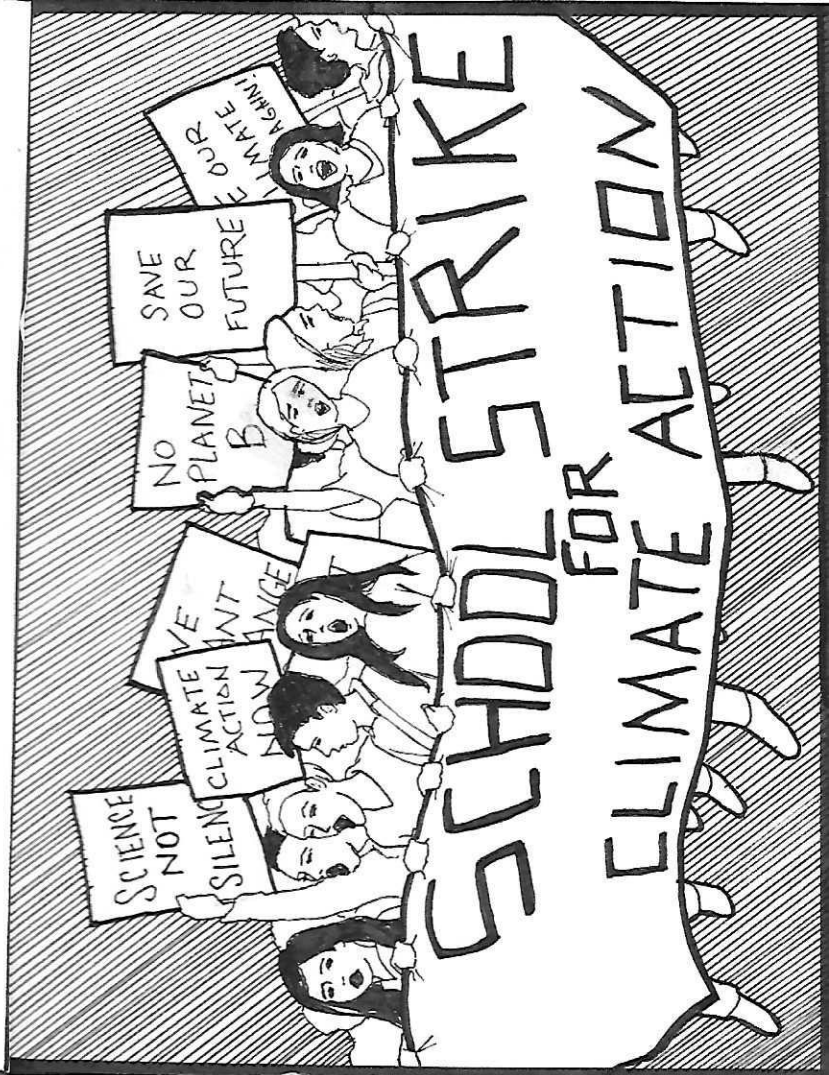 SCIENCE
NOT
SILENC
CLIMATE
ACTION
NOW
VE
ANT
ANGE
NO
PLANET
B
SAVE
OUR
FUTURE
E OUR
IMATE
AGAIN!
SCHOOL STRIKE
FOR
CLIMATE ACTION